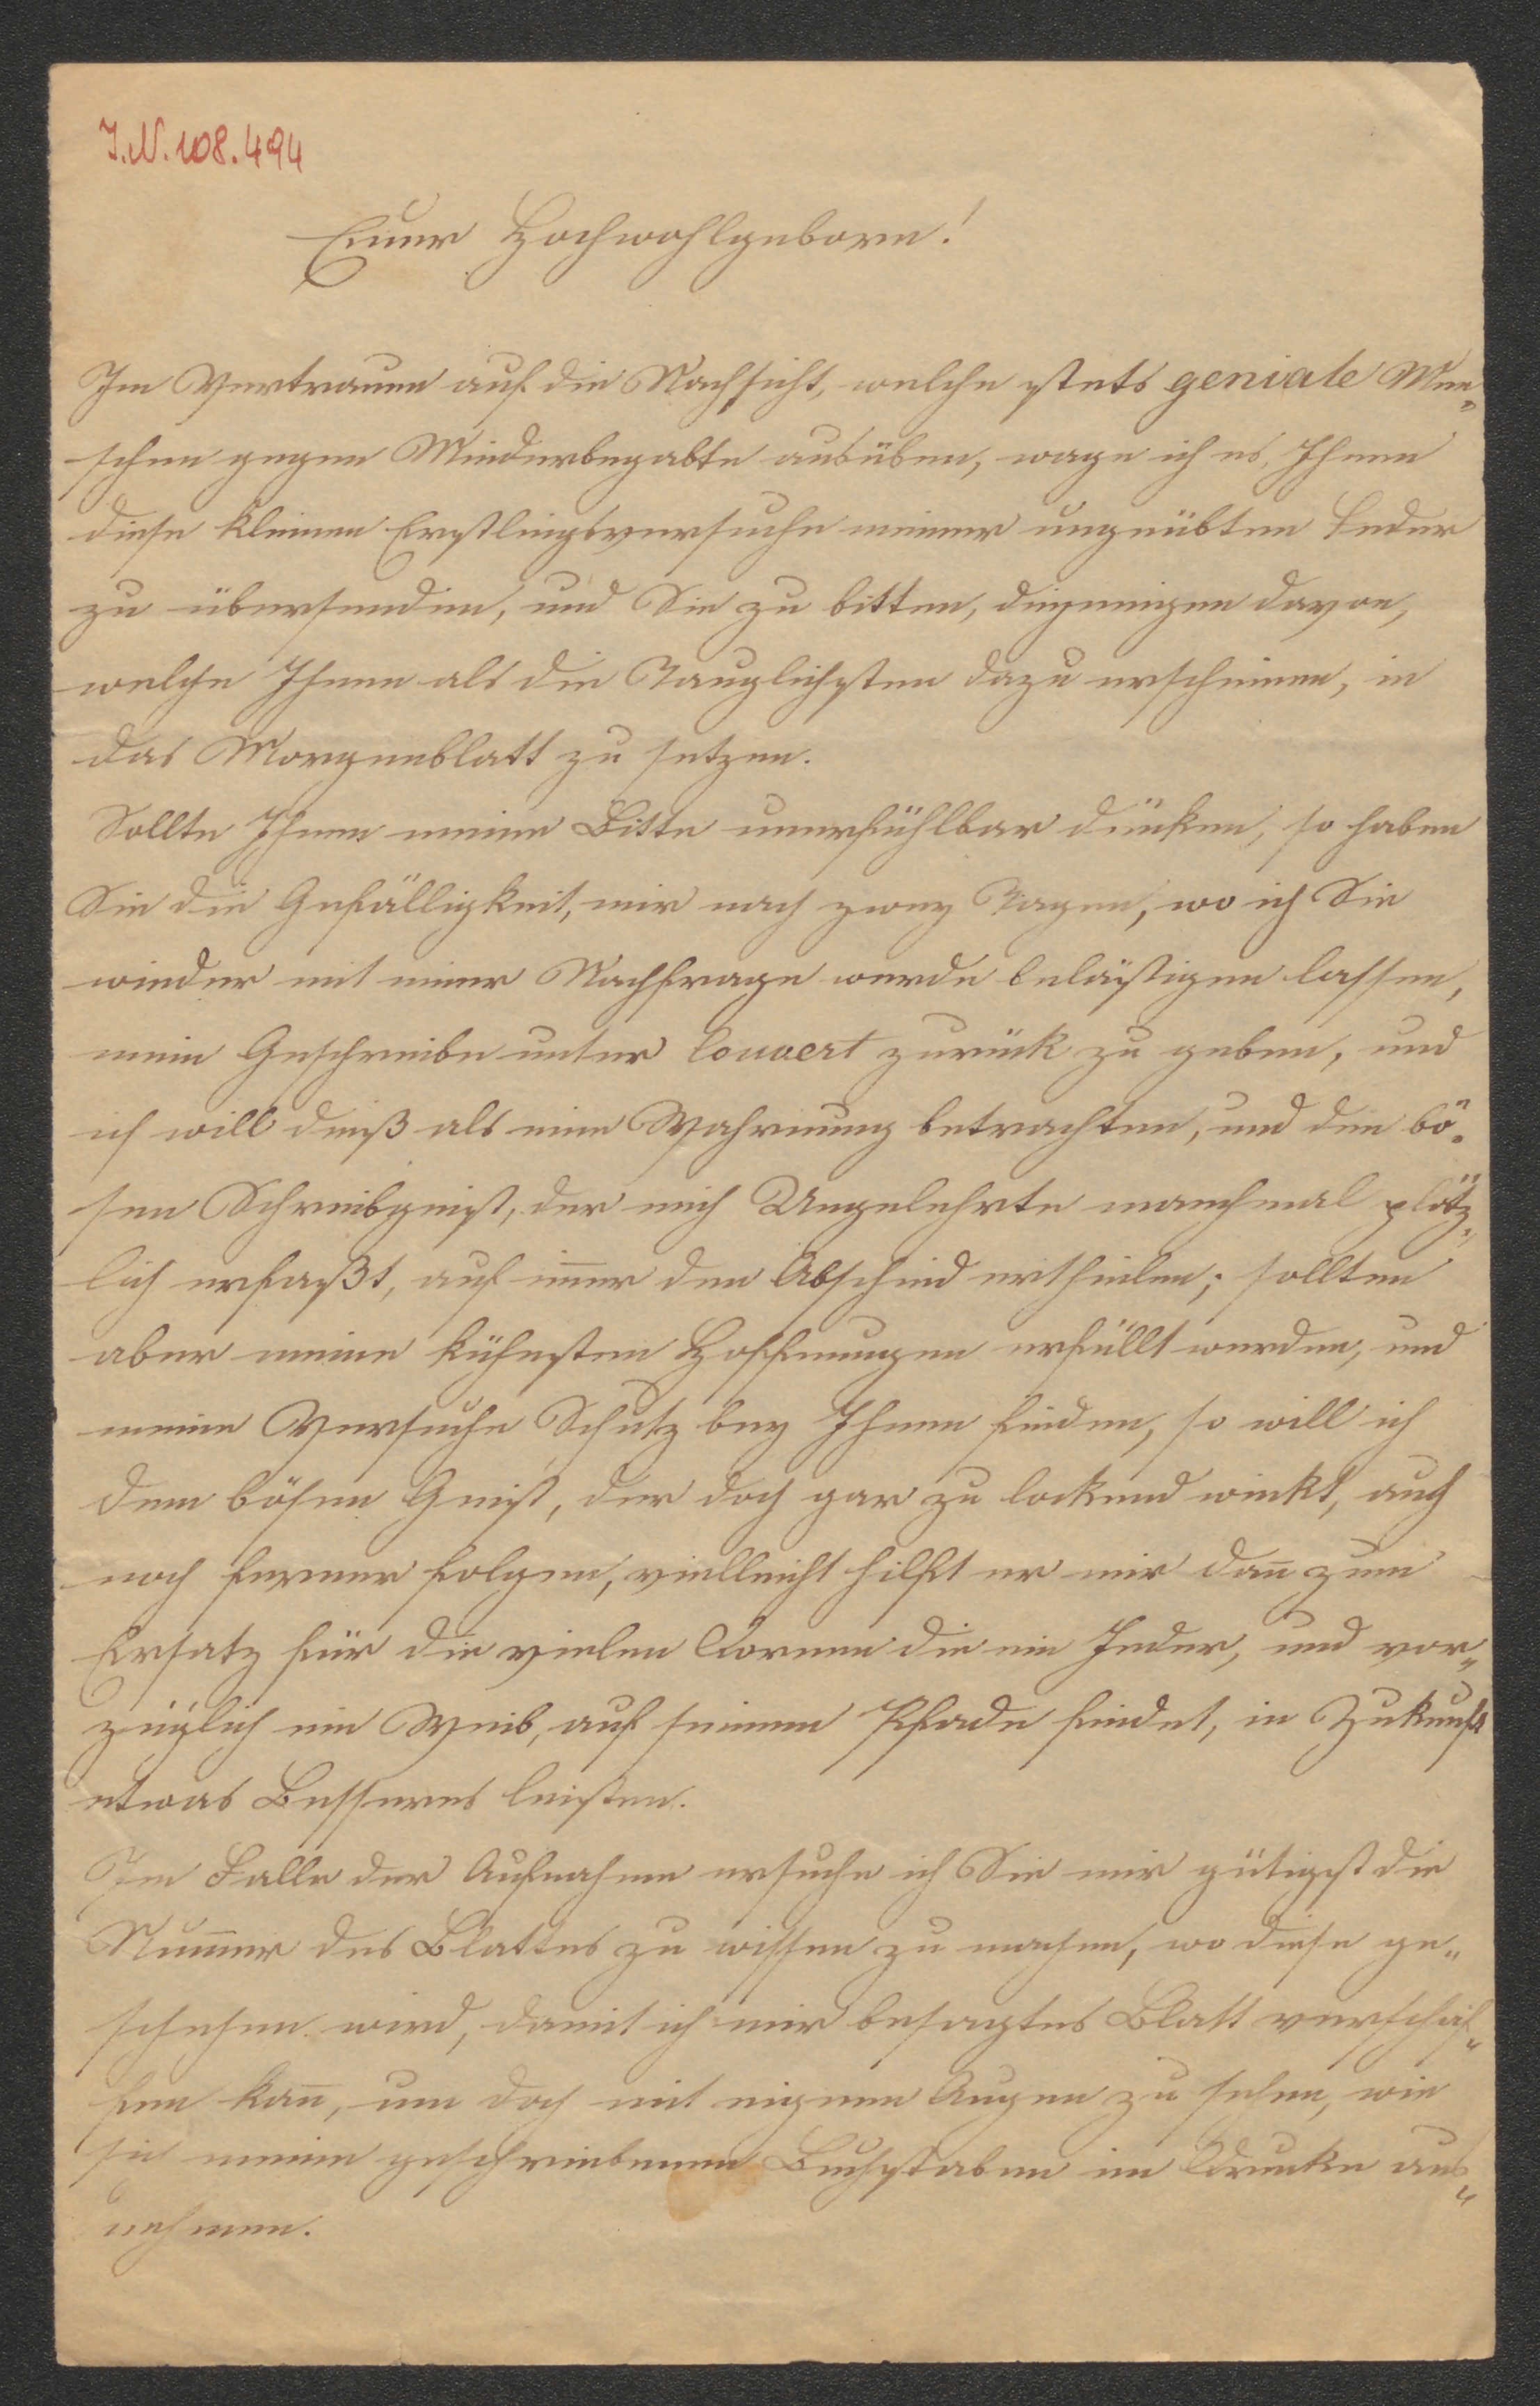 I.N. 108.494
Euer Hochwohlgeboren!
Im Vertrauen auf die Nachsicht, welche stets geniale Men„
schen gegen Minderbegabte ausüben, wage ich es, Ihnen
diese kleinen Erstlingsversuche meiner ungeübten Feder
zu übersenden, und Sie zu bitten, diejenigen davon,
welche Ihnen als die Tauglichsten dazu erscheinen, in
das Morgenblatt zu setzen.
Sollte Ihnen meine Bitte unerfühlbar dünken, so haben
Sie die Gefälligkeit, mir nach zwey Tagen, wo ich Sie
wieder mit einer Nachfrage werde belästigen lassen,
mein Geschreibe unter Couvert zurück zu geben, und
ich will dieß als eine Wahrnung betrachten, und den bö„
sen Schreibgeist, der mich Ungelehrte manchmal plötz„
lich erfaßt, auf im̄er den Abschied ertheilen; sollten
aber meine kühnsten Hoffnungen erfüllt werden, und
meine Versuche Schutz bey Ihnen finden, so will ich
dem bösen Geist, der doch gar zu lockend winkt, auch
noch ferner folgen, vielleicht hilft er mir dan̄ zum
Ersatz für die vielen Dornen die ein Jeder, und vor„
züglich ein Weib, auf seinem Pfade findet, in Zukunft
etwas Besseres leisten.
Im Falle der Aufnahme ersuche ich Sie mir gütigst die
Num̄er des Blattes zu wissen zu machen, wo diese ge„
schehen wird, damit ich mir besagtes Blatt verschaf„
fen kan̄, um doch mit eignen Augen zu sehen, wie
sich meine geschriebenen Buchstaben im Drucke aus„
nehmen.